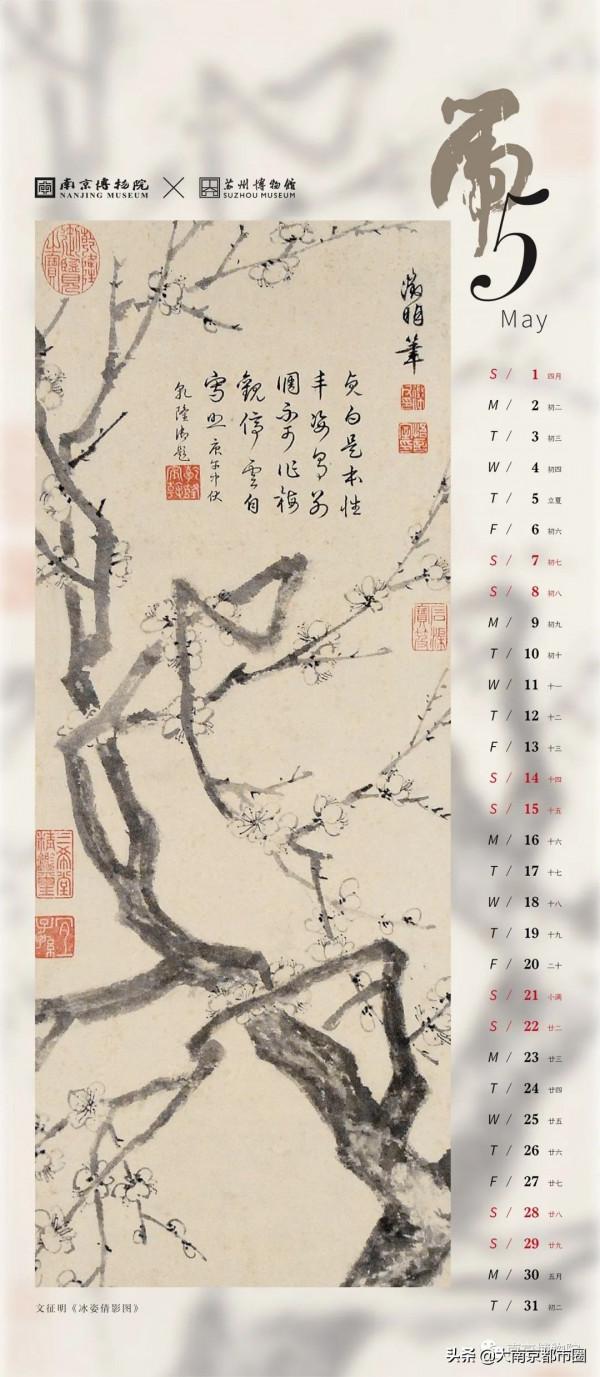 南京博物院
NANJING MUSEUM
苏州博物館
SUZHOU MUSEUM
虎
5
May
徵明筆
貞白是本性
觀停雲自
寫照 庚午中伏
乾隆御題
乾隆御覽之寶
石渠寶笈
三希堂精鑑璽
宜子孫
S / 1 四月
M / 2 初二
T / 3 初三
W / 4 初四
T / 5 立夏
F / 6 初六
S / 7 初七
S / 8 初八
M / 9 初九
T / 10 初十
W / 11 十一
T / 12 十二
F / 13 十三
S / 14 十四
S / 15 十五
M / 16 十六
T / 17 十七
W / 18 十八
T / 19 十九
F / 20 二十
S / 21 小满
S / 22 廿二
M / 23 廿三
T / 24 廿四
W / 25 廿五
T / 26 廿六
F / 27 廿七
S / 28 廿八
S / 29 廿九
M / 30 五月
T / 31 初二
文征明《冰姿倩影图》
南京博物院
头条 @大南京都市圈